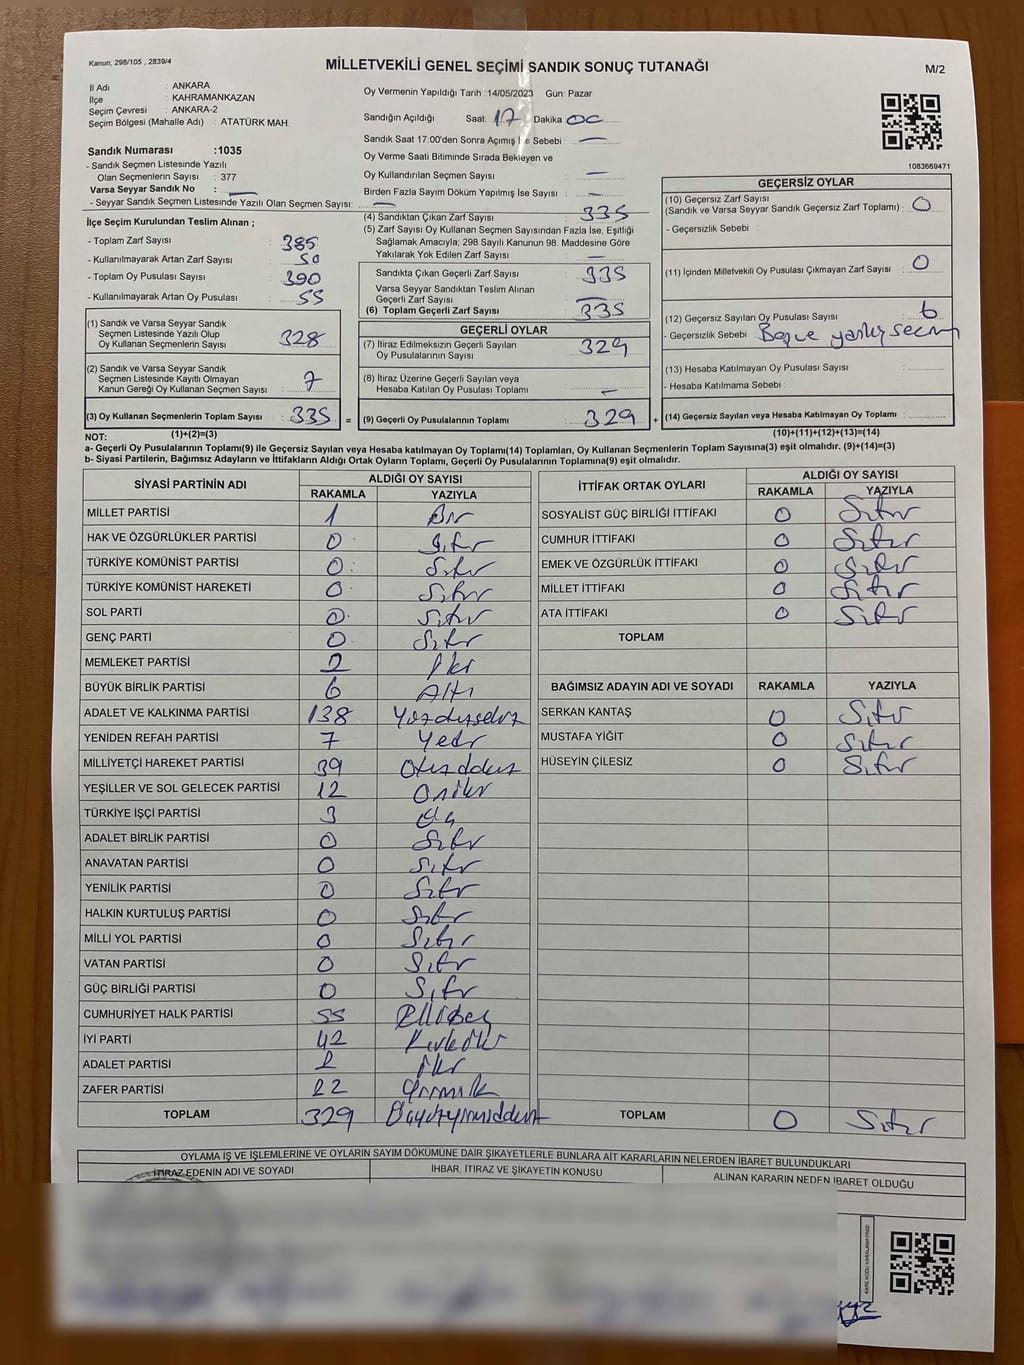 Kanun; 298/105 , 2839/4
MİLLETVEKİLİ GENEL SEÇİMİ SANDIK SONUÇ TUTANAĞI
M/2
İl Adı : ANKARA
İlçe : KAHRAMANKAZAN
Seçim Çevresi : ANKARA-2
Seçim Bölgesi (Mahalle Adı) : ATATÜRK MAH.
Sandık Numarası :1035
- Sandık Seçmen Listesinde Yazılı
Olan Seçmenlerin Sayısı : 377
Varsa Seyyar Sandık No : —
- Seyyar Sandık Seçmen Listesinde Yazılı Olan Seçmen Sayısı: —
Oy Vermenin Yapıldığı Tarih :14/05/2023 Gün: Pazar
Sandığın Açıldığı Saat: 17 Dakika 00
Sandık Saat 17:00'den Sonra Açımış İse Sebebi : —
Oy Verme Saati Bitiminde Sırada Bekleyen ve
Oy Kullandırılan Seçmen Sayısı : —
Birden Fazla Sayım Döküm Yapılmış İse Sayısı : —
1083669471
İlçe Seçim Kurulundan Teslim Alınan ;
- Toplam Zarf Sayısı : 385
- Kullanılmayarak Artan Zarf Sayısı : 50
- Toplam Oy Pusulası Sayısı : 390
- Kullanılmayarak Artan Oy Pusulası : 55
(1) Sandık ve Varsa Seyyar Sandık
Seçmen Listesinde Yazılı Olup
Oy Kullanan Seçmenlerin Sayısı : 328
(2) Sandık ve Varsa Seyyar Sandık
Seçmen Listesinde Kayıtlı Olmayan
Kanun Gereği Oy Kullanan Seçmen Sayısı : 7
(3) Oy Kullanan Seçmenlerin Toplam Sayısı : 335 =
(1)+(2)=(3)
(4) Sandıktan Çıkan Zarf Sayısı : 335
(5) Zarf Sayısı Oy Kullanan Seçmen Sayısından Fazla İse, Eşitliği
Sağlamak Amacıyla; 298 Sayılı Kanunun 98. Maddesine Göre
Yakılarak Yok Edilen Zarf Sayısı : —
Sandıkta Çıkan Geçerli Zarf Sayısı : 335
Varsa Seyyar Sandıktan Teslim Alınan
Geçerli Zarf Sayısı : —
(6) Toplam Geçerli Zarf Sayısı : 335
GEÇERLİ OYLAR
(7) İtiraz Edilmeksizin Geçerli Sayılan
Oy Pusulalarının Sayısı : 329
(8) İtiraz Üzerine Geçerli Sayılan veya
Hesaba Katılan Oy Pusulası Toplamı : —
(9) Geçerli Oy Pusulalarının Toplamı : 329 +
GEÇERSİZ OYLAR
(10) Geçersiz Zarf Sayısı
(Sandık ve Varsa Seyyar Sandık Geçersiz Zarf Toplamı) : 0
- Geçersizlik Sebebi :
(11) İçinden Milletvekili Oy Pusulası Çıkmayan Zarf Sayısı : 0
(12) Geçersiz Sayılan Oy Pusulası Sayısı : 6
- Geçersizlik Sebebi :
(13) Hesaba Katılmayan Oy Pusulası Sayısı :
- Hesaba Katılmama Sebebi :
(14) Geçersiz Sayılan veya Hesaba Katılmayan Oy Toplamı :
(10)+(11)+(12)+(13)=(14)
NOT:
a- Geçerli Oy Pusulalarının Toplamı(9) ile Geçersiz Sayılan veya Hesaba katılmayan Oy Toplamı(14) Toplamları, Oy Kullanan Seçmenlerin Toplam Sayısına(3) eşit olmalıdır. (9)+(14)=(3)
b- Siyasi Partilerin, Bağımsız Adayların ve İttifakların Aldığı Ortak Oyların Toplamı, Geçerli Oy Pusulalarının Toplamına(9) eşit olmalıdır.
SİYASİ PARTİNİN ADI ALDIĞI OY SAYISI
RAKAMLA YAZIYLA
MİLLET PARTİSİ 1 Bir
HAK VE ÖZGÜRLÜKLER PARTİSİ 0 Sıfır
TÜRKİYE KOMÜNİST PARTİSİ 0 Sıfır
TÜRKİYE KOMÜNİST HAREKETİ 0 Sıfır
SOL PARTİ 0 Sıfır
GENÇ PARTİ 0 Sıfır
MEMLEKET PARTİSİ 2 İki
BÜYÜK BİRLİK PARTİSİ 6 Altı
ADALET VE KALKINMA PARTİSİ 138 Yüzotuzsekiz
YENİDEN REFAH PARTİSİ 7 Yedi
MİLLİYETÇİ HAREKET PARTİSİ 39 Otuzdokuz
YEŞİLLER VE SOL GELECEK PARTİSİ 12 Oniki
TÜRKİYE İŞÇİ PARTİSİ 3 Üç
ADALET BİRLİK PARTİSİ 0 Sıfır
ANAVATAN PARTİSİ 0 Sıfır
YENİLİK PARTİSİ 0 Sıfır
HALKIN KURTULUŞ PARTİSİ 0 Sıfır
MİLLİ YOL PARTİSİ 0 Sıfır
VATAN PARTİSİ 0 Sıfır
GÜÇ BİRLİĞİ PARTİSİ 0 Sıfır
CUMHURİYET HALK PARTİSİ 55 Ellibeş
İYİ PARTİ 42 Kırkiki
ADALET PARTİSİ 2 İki
ZAFER PARTİSİ 22 Yirmiiki
TOPLAM 329 Üçyüzyirmidokuz
İTTİFAK ORTAK OYLARI ALDIĞI OY SAYISI
RAKAMLA YAZIYLA
SOSYALİST GÜÇ BİRLİĞİ İTTİFAKI 0 Sıfır
CUMHUR İTTİFAKI 0 Sıfır
EMEK VE ÖZGÜRLÜK İTTİFAKI 0 Sıfır
MİLLET İTTİFAKI 0 Sıfır
ATA İTTİFAKI 0 Sıfır
TOPLAM
BAĞIMSIZ ADAYIN ADI VE SOYADI RAKAMLA YAZIYLA
SERKAN KANTAŞ 0 Sıfır
MUSTAFA YİĞİT 0 Sıfır
HÜSEYİN ÇİLESİZ 0 Sıfır
TOPLAM 0 Sıfır
OYLAMA İŞ VE İŞLEMLERİNE VE OYLARIN SAYIM DÖKÜMÜNE DAİR ŞİKAYETLERLE BUNLARA AİT KARARLARIN NELERDEN İBARET BULUNDUKLARI
İTİRAZ EDENİN ADI VE SOYADI İHBAR, İTİRAZ VE ŞİKAYETİN KONUSU ALINAN KARARIN NEDEN İBARET OLDUĞU